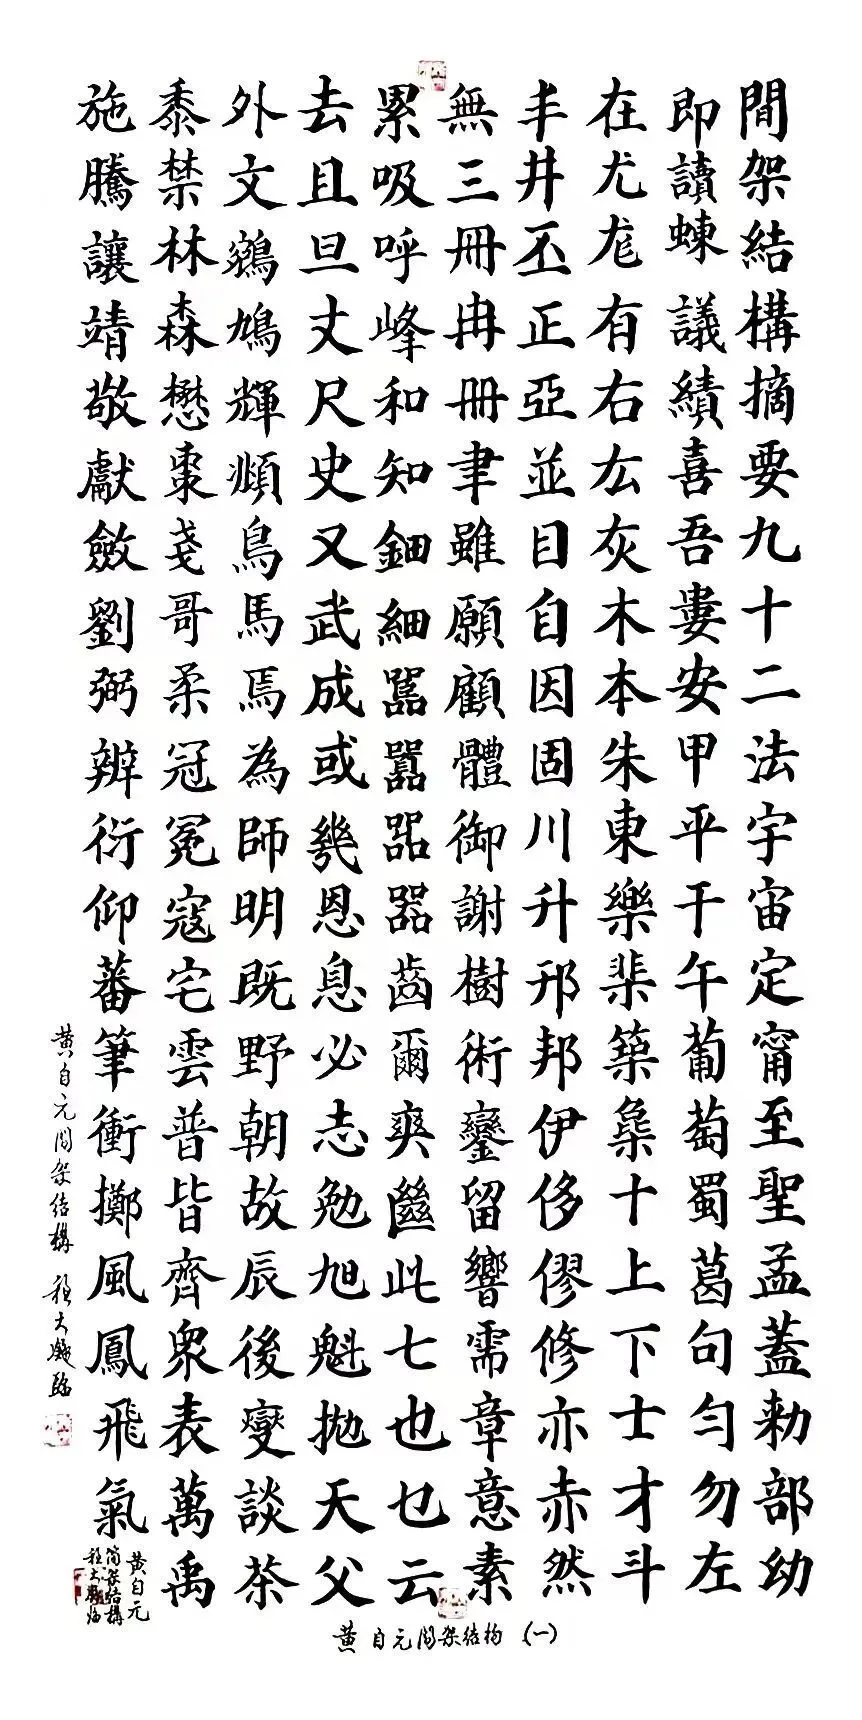 間架結構摘要九十二法宇宙定甯至聖孟蓋勑部幼
即讀蝀議績喜吾婁安甲平干午葡萄蜀葛句勻勿左
在尤尨有右厷灰木本朱東樂棐築梟十上下士才斗
丰井丕正亞並目自因固川升邢邦伊侈僇修亦赤然
無三冊冉冊聿雖願顧體御謝樹術鑾留響需章意素
累吸呼峰和知鈿細囂器齒爾爽此七也乜云
去且旦丈尺史又武成或幾恩息必志勉旭魁拋天父
外文鵷鳩輝頫鳥馬焉為師明既野朝故辰後變談茶
黍禁林森懋棗戔哥柔冠冕寇宅雲普皆齊眾表萬禹
施騰讓靖敬獻斂劉弼辨衍仰蕃筆衝擲風鳳飛氣
黄自元間架结構 程大
黄自元
间架结構
程大
黄自元间架结构（一）